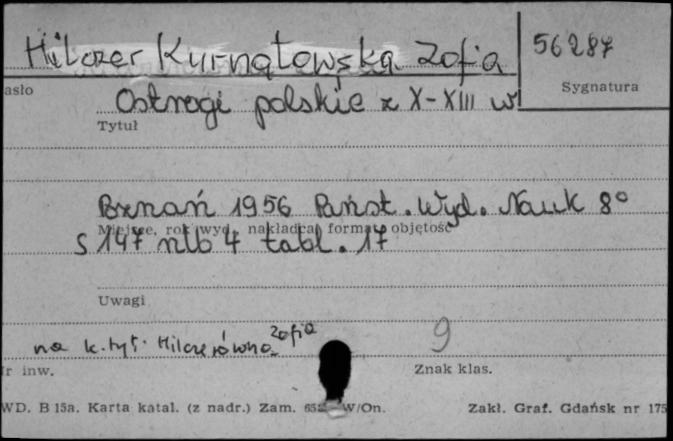 Hilczer Kurnatowska Zofia 56287
asło Sygnatura
Ostrogi polskie z X-XIII w
Tytuł
Poznań 1956 Państ. Wyd. Nauk 8°
Miejsce, rok wyd., nakładca, format, objętość
s 147 nlb 4 tabl. 17
Uwagi
na k. tyt. Hilczerówna Zofia 9
r inw. Znak klas.
WD. B 15a. Karta katal. (z nadr.) Zam. W/On. Zakł. Graf. Gdańsk nr 175